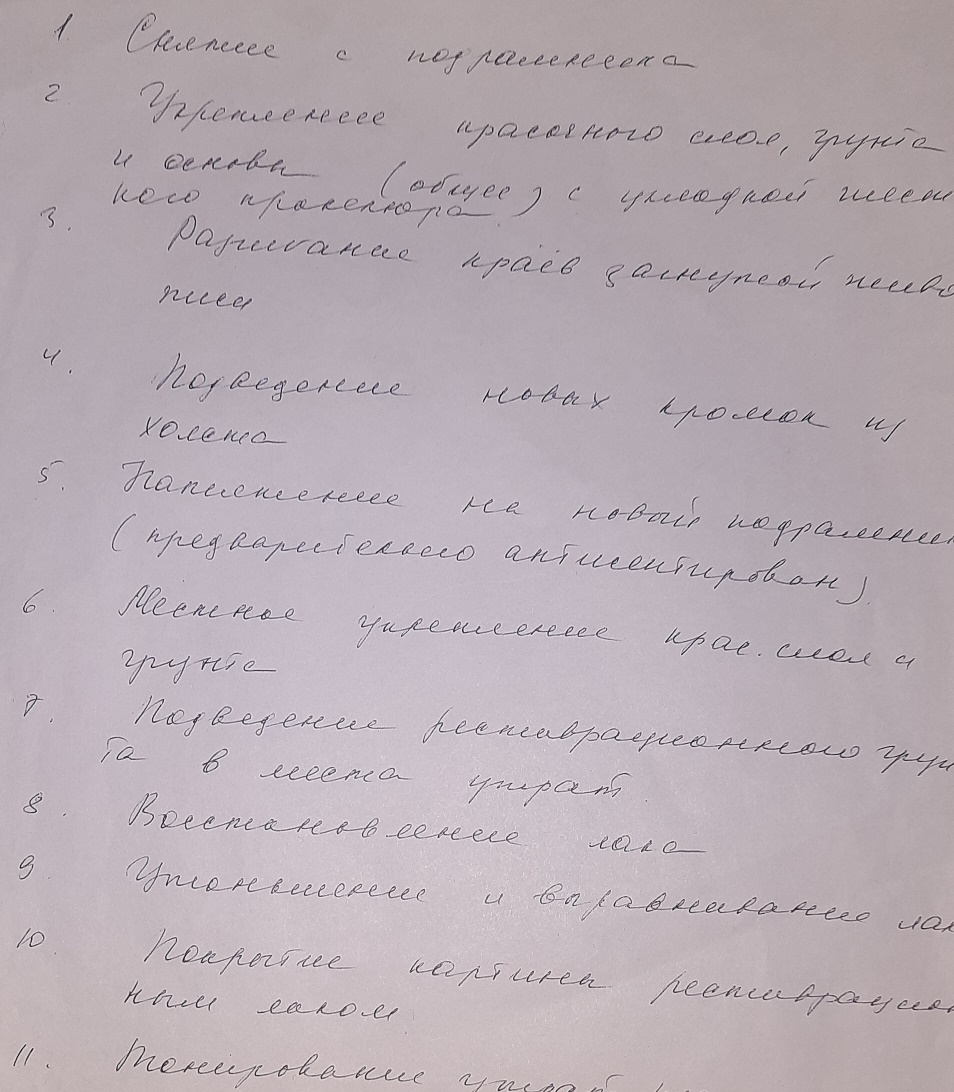 1. Снятие с подрамника
2. Укрепление красочного слоя, грунта
и основы (общее) с укладкой жест
кого кракелюра
3. Разгибание краёв загнутой живо
писи
4. Подведение новых кромок из
холста
5. Натяжение на новый подрамник
(предварительно антисептирован).
6. Местное укрепление крас. слоя и
грунта
7. Подведение реставрационного грун
та в места утрат
8. Восстановление лака
9. Утоньшение и выравнивание лак
10. Покрытие картины реставрацион
ным лаком
11. Тонирование утрат